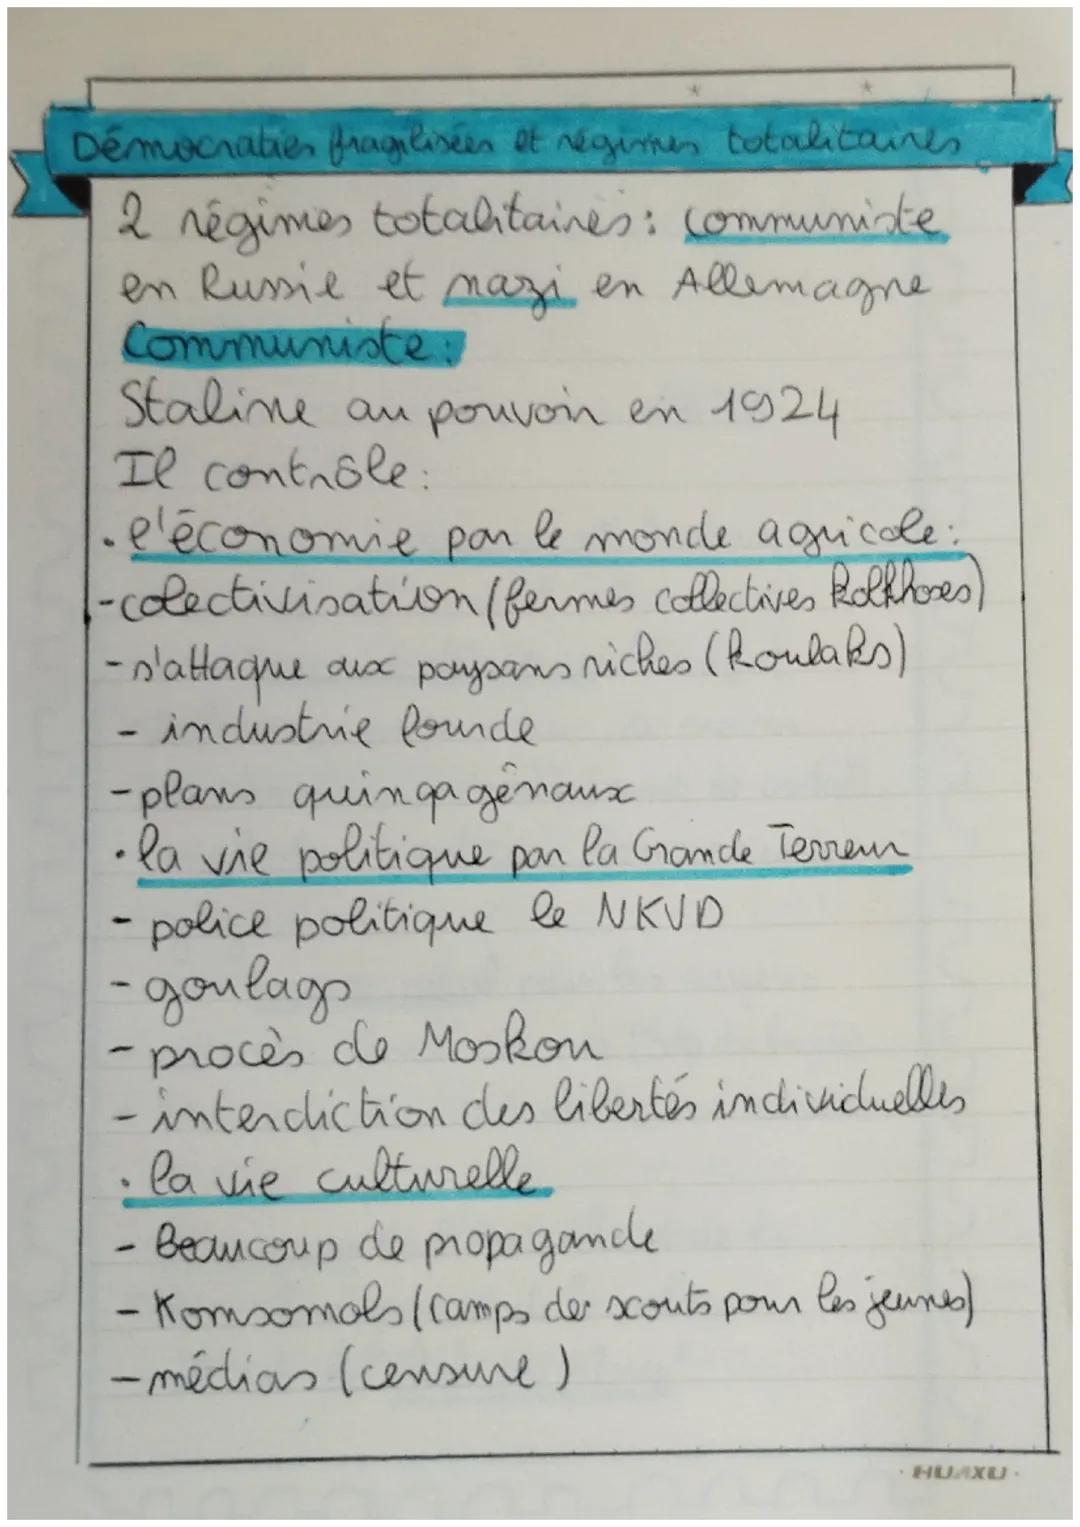 Démocraties fragilisées et régimes totalitaires
2 régimes totalitaires: communiste
en Russie et nazi en Allemagne
Communiste:
Staline au pouvoir en 1924
Il contrôle:
• l'économie par le monde agricole:
-colectivisatiion (fermes collectives kolkhozes)
- s'attaque aux paysans riches (koulaks)
- industrie lourde
- plans quinqagénaux
• la vie politique par la Grande Terreur
- police politique le NKVD
- goulags
- procès de Moskou
- interdiction des libertés individuelles
• la vie culturelle
- Beaucoup de propagande
- Komsomols (camps de scouts pour les jeunes)
- médias (censure)
· HUAXU ·